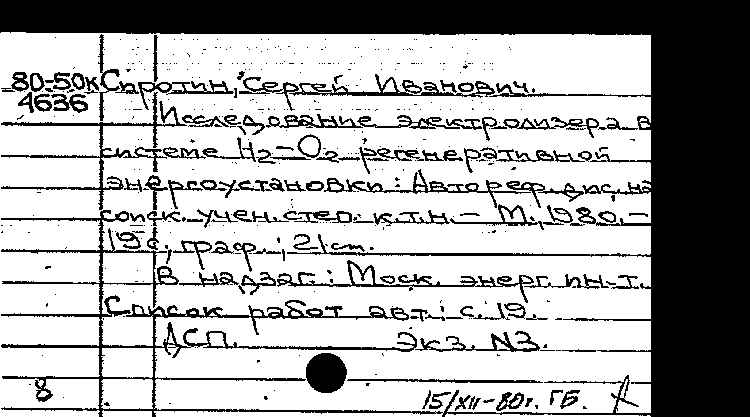 80-50к Сиротин, Сергей Иванович.
4636
Исследование электролизера в
системе H2-O2 регенеративной
энергоустановки: Автореф. дис. на
соиск. учен. степ. к.т.н. - М., 1980. -
19 с., граф.; 21 cm.
В надзаг.: Моск. энерг. ин-т.
Список работ авт.: с. 19.
ДСП. Экз. N3.
8 15/XII-80г. ГБ.